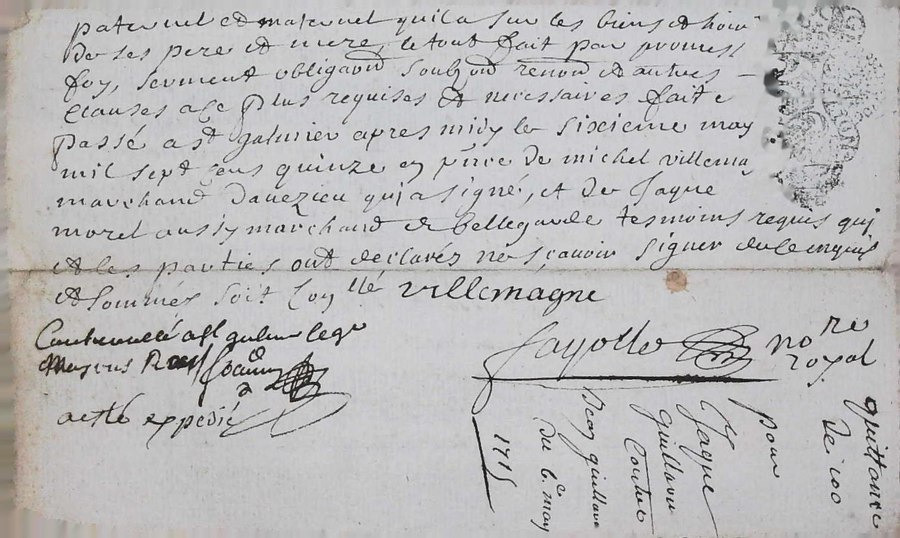 paternel et maternel quil a sur les biens et hoirs
de ses pere et mere, le tout fait par promess
foy, serment obligaons soubzons renons et autres
clauses a ce plus requises et necessaires fait e
passé a st galmier apres midy le sixieme may
mil sept cens quinze en pnce de michel villema
marchand davezieu qui a signé, et de Jaque
morel aussy marchand de bellegarde tesmoins requis qui
et les parties ont declarés ne sçavoir signer de ce enquis
et sommés soit coll villemagne
Controuellé a st galmier le 9e
may 1715 Recu
acte expedié
fayolle nore
royal
quittance
de 100
pour
Jaque
guillaume
Contre
Jean guillaume
du 6e may
1715